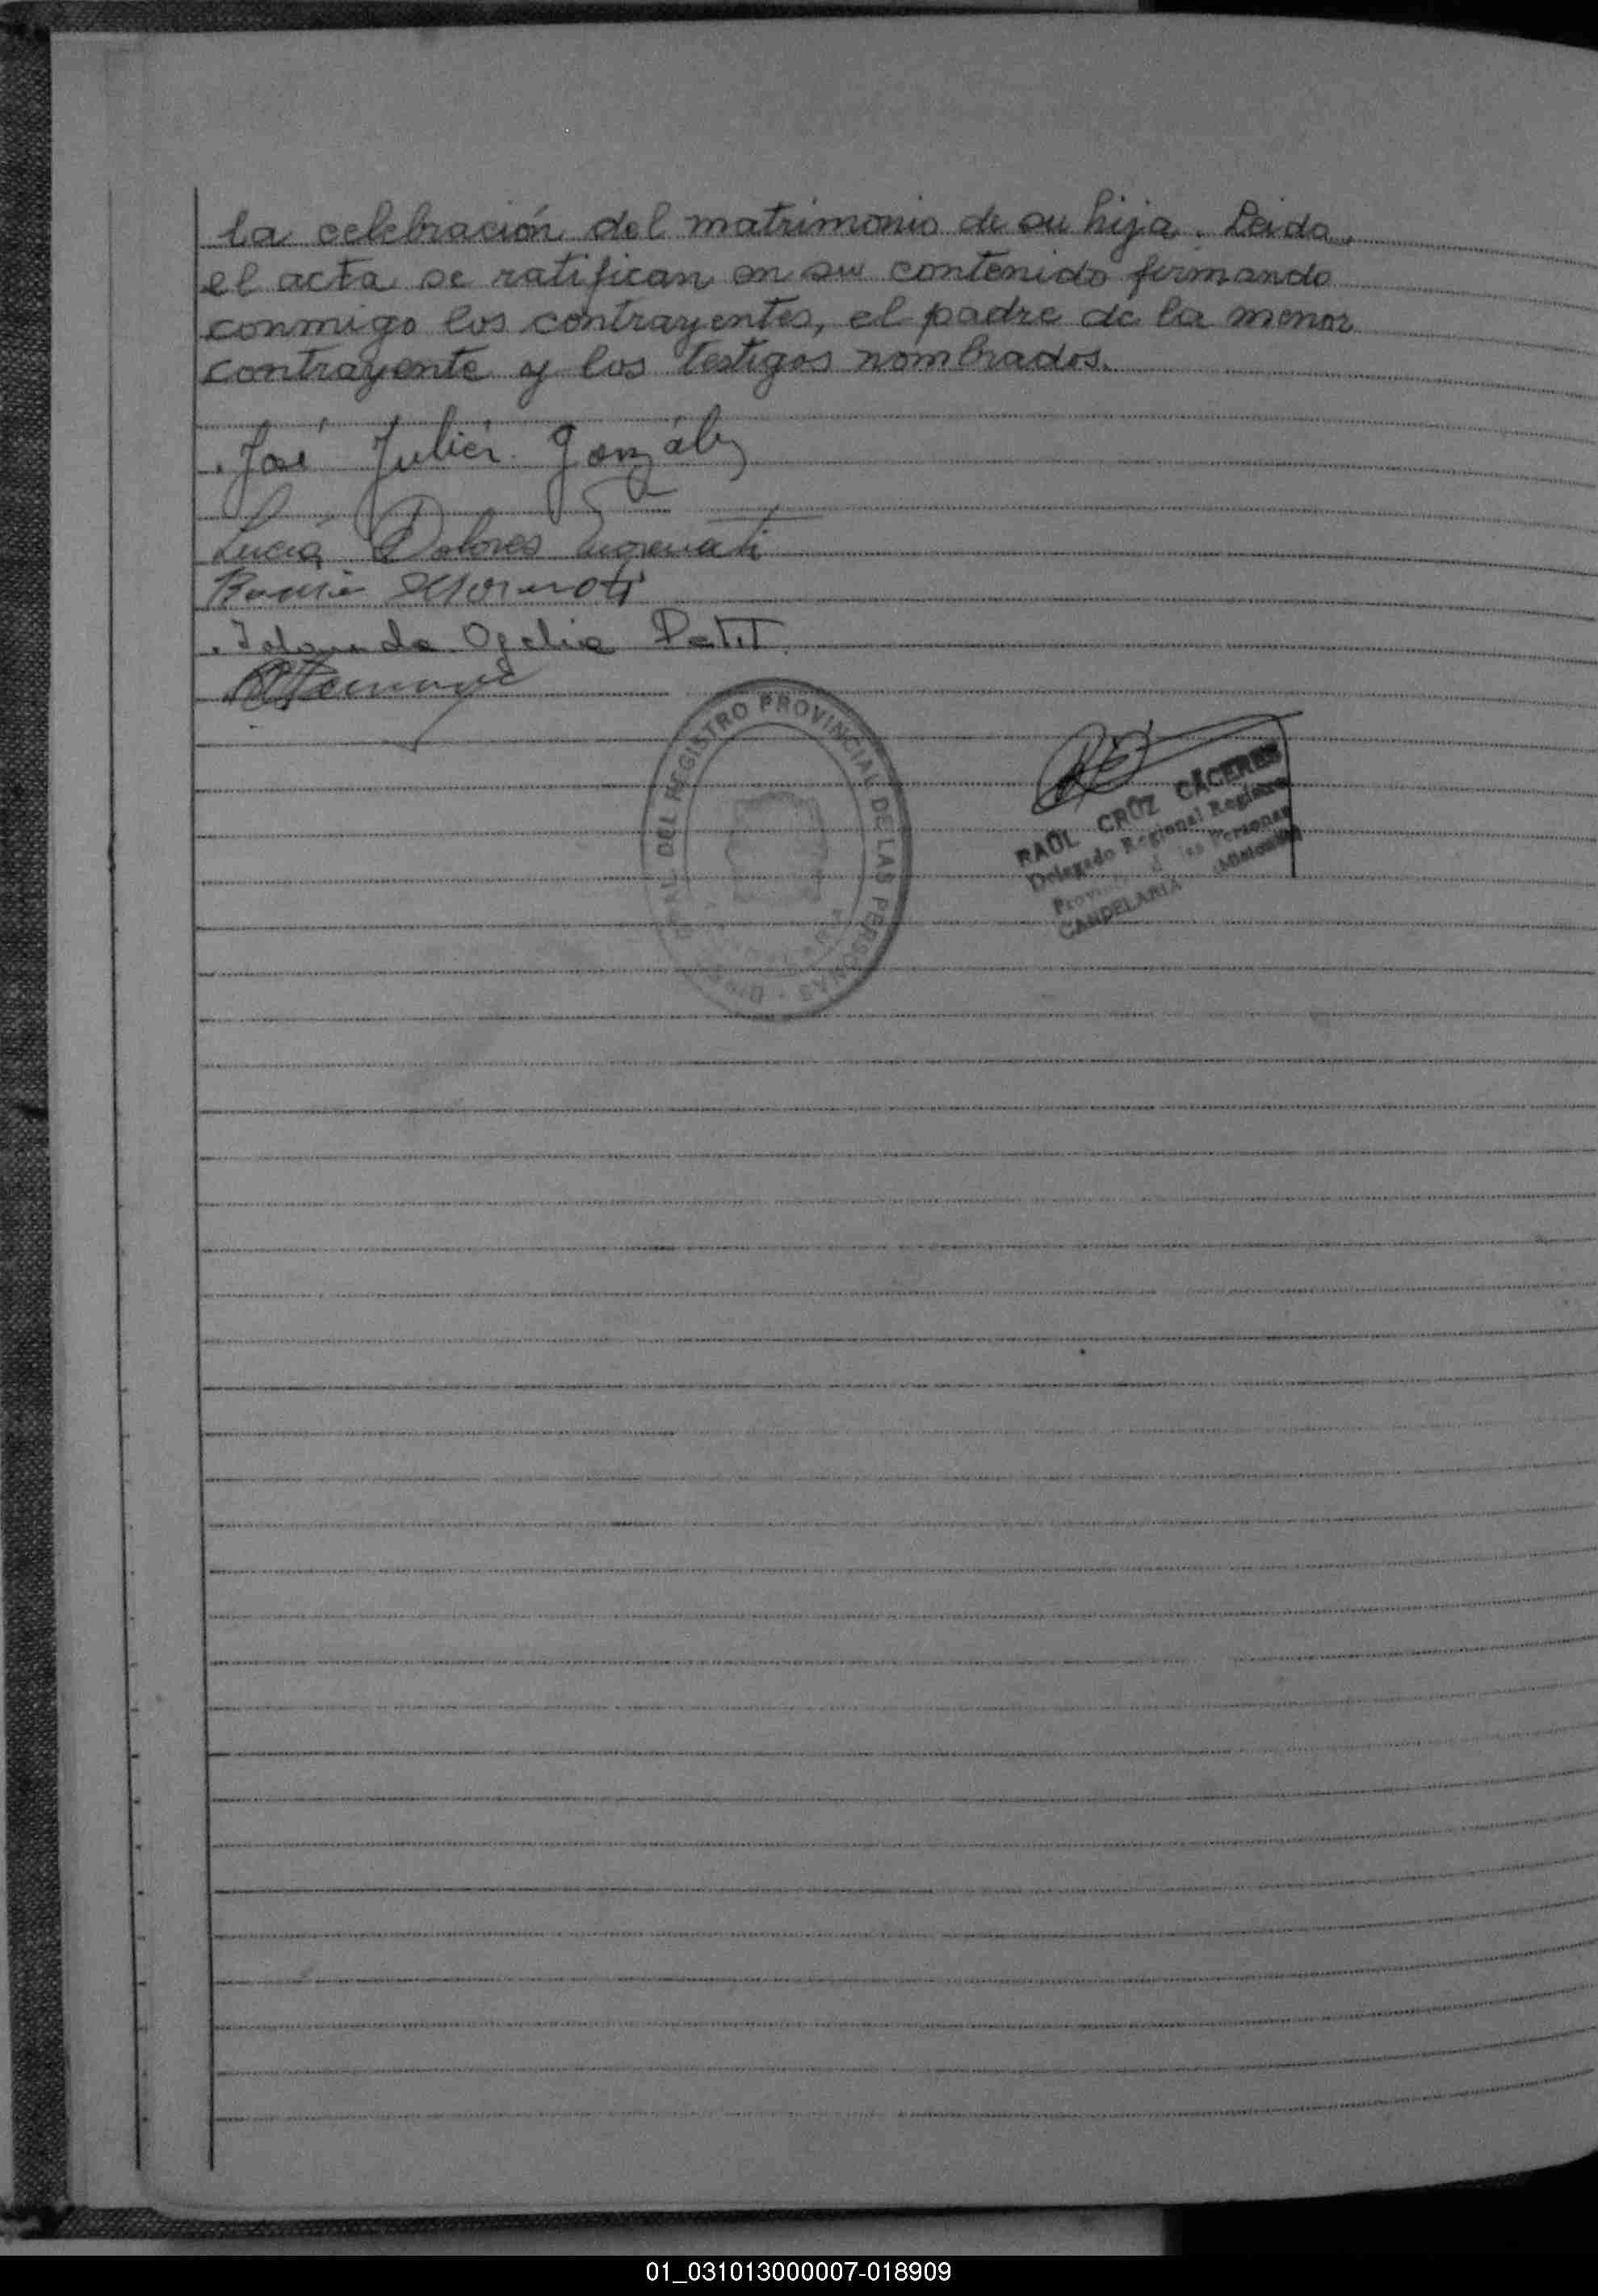 la celebración del matrimonio de su hija. Leida
el acta se ratifican en su contenido firmando
conmigo los contrayentes, el padre de la menor
contrayente y los testigos nombrados.
José Julián González
Lucía Dolores Morenati
Morenoti
Iolanda Ofelia Petit
DEL REGISTRO PROVINCIAL DE LAS PERSONAS
RAÚL CRÚZ CÁCERES
Delegado Regional Registro
las Personas
CANDELARIA (Misiones)
01_031013000007-018909